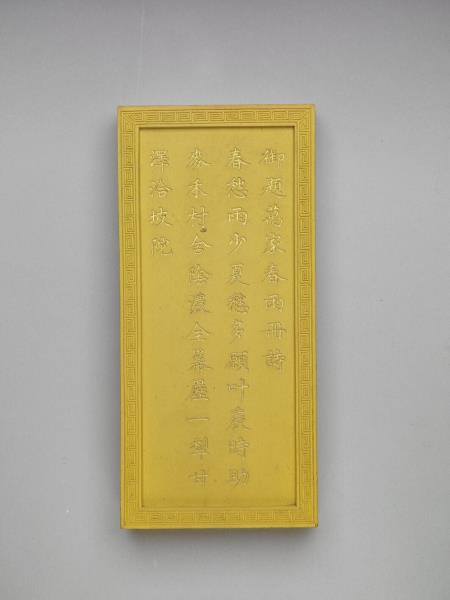 御題萬家春雨冊詩
春愁雨少夏愁多願叶農時助
麥禾村舍陰全幕一犁甘
澤洽坡陀